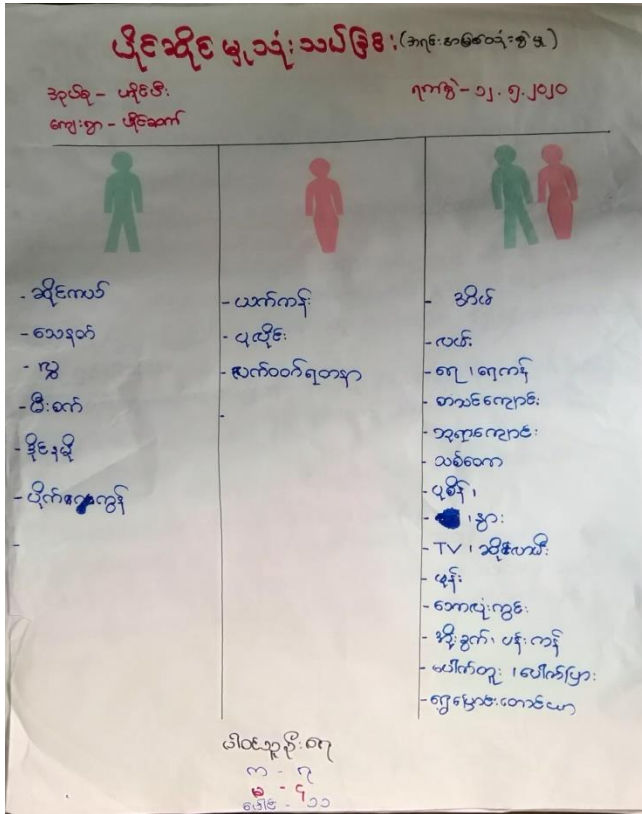 ပိုင်ဆိုင်မှုသုံးသပ်ခြင်း (အရင်းအမြစ်သုံးစွဲမှု)
အုပ်စု - ပိုင်စီး
ရက်စွဲ - ၁၂.၅.၂၀၂၀
ကျေးရွာ -
- ဆိုင်ကယ်
- သေနတ်
- လွှ
- မီးစက်
- ဒိုင်နမို
- ပိုက်ကွန်
-
- ယက်ကန်း
- ပုလိုင်း
- လက်ဝတ်ရတနာ
-
- အိမ်
- လယ်
- ရေ ၊ ရေကန်
- စာသင်ကျောင်း
- ဘုရားကျောင်း
- သစ်တော
- ပုစိန် ၊
- ၊ နွား
- TV ၊ ဆိုလာမီး
- ဖုန်း
- ဘောလုံးကွင်း
- အိုးခွက် ၊ ပန်းကန်
- ပေါက်တူး ၊ ပေါက်ပြား
- ရွှေ့ပြောင်းတောင်ယာ
ပါဝင်သူဦးရေ
က - ၇
မ - ၄
ပေါင်း - ၁၁